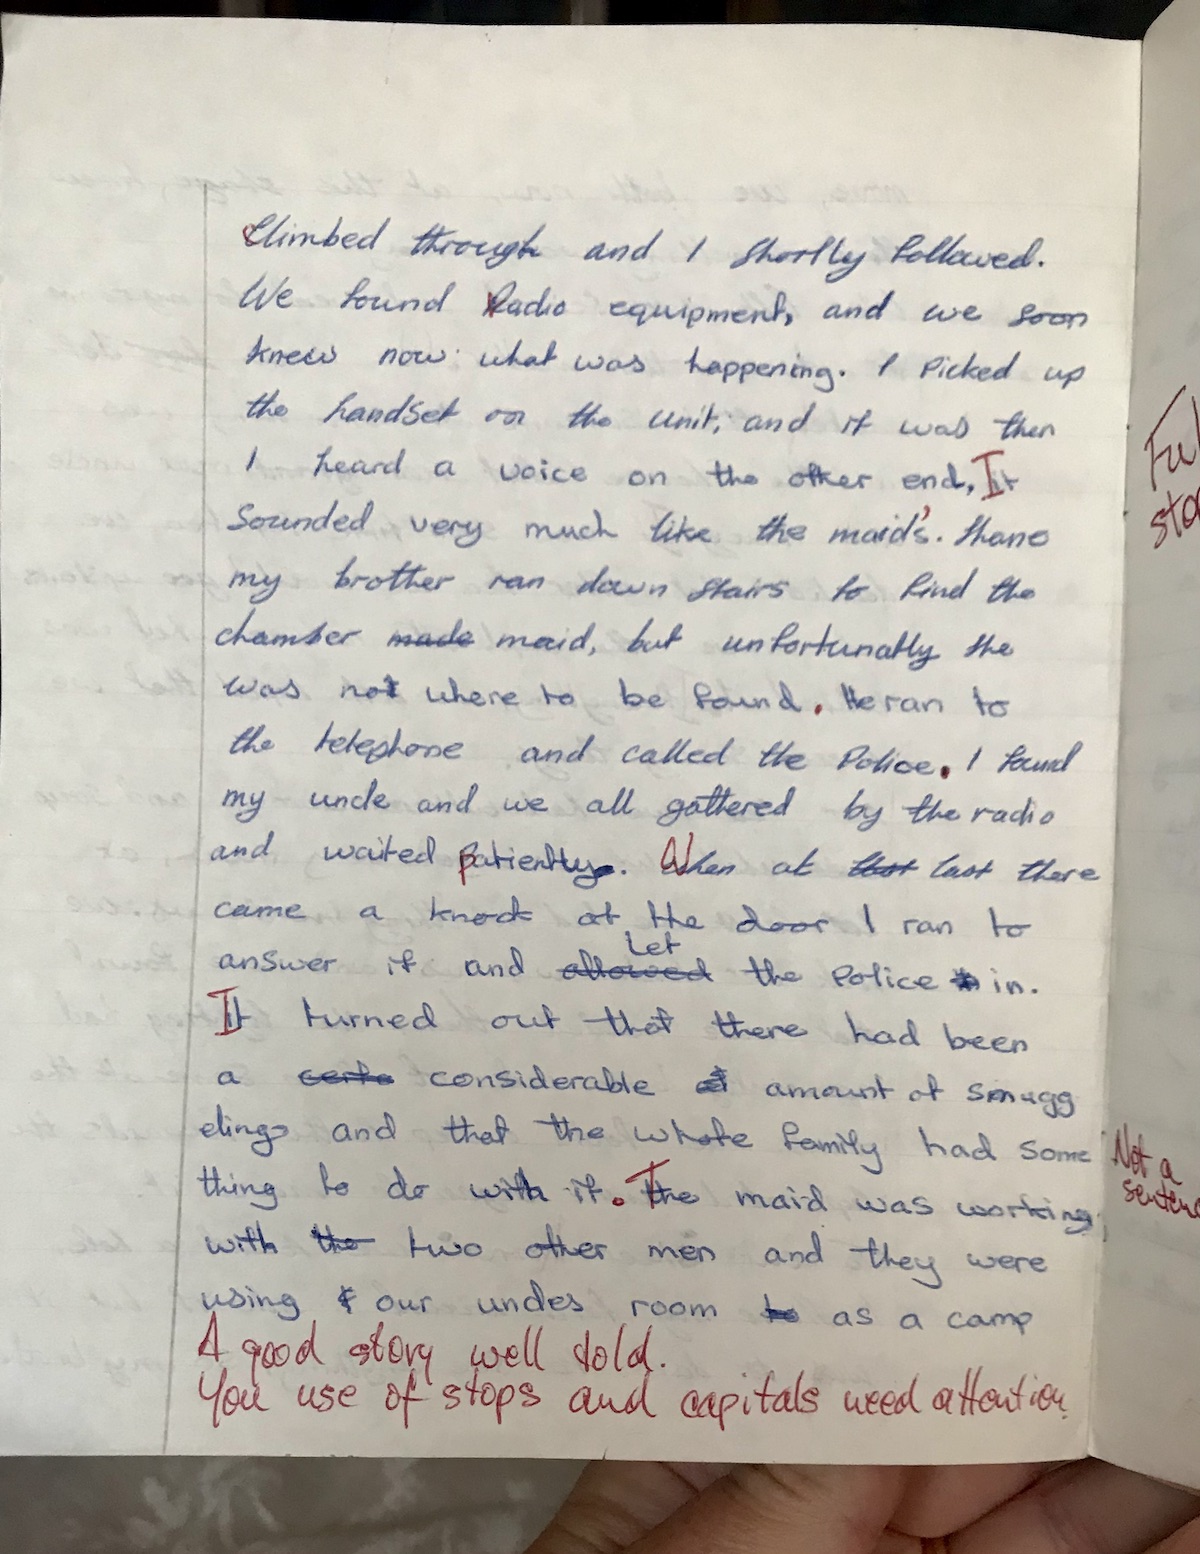 Climbed through and I shortly followed.
We found Radio equipment, and we soon
knew now what was happening. I Picked up
the handset on the unit, and it was then
I heard a voice on the other end, It
Sounded very much like the maid's. Shane
my brother ran down stairs to find the
chamber made maid, but unfortunatly she
was not where to be found. He ran to
the telephone and called the Police. I found
my uncle and we all gathered by the radio
and waited patiently. When at last there
came a knock at the door I ran to
Let
answer it and allowed the Police in.
It turned out that there had been
a considerable amount of smugg
elings and that the whole family had some
thing to do with it. The maid was working
with the two other men and they were
using our uncles room to as a camp
A good story well told.
You use of stops and capitals need attention
Ful
sto
Not a
senten